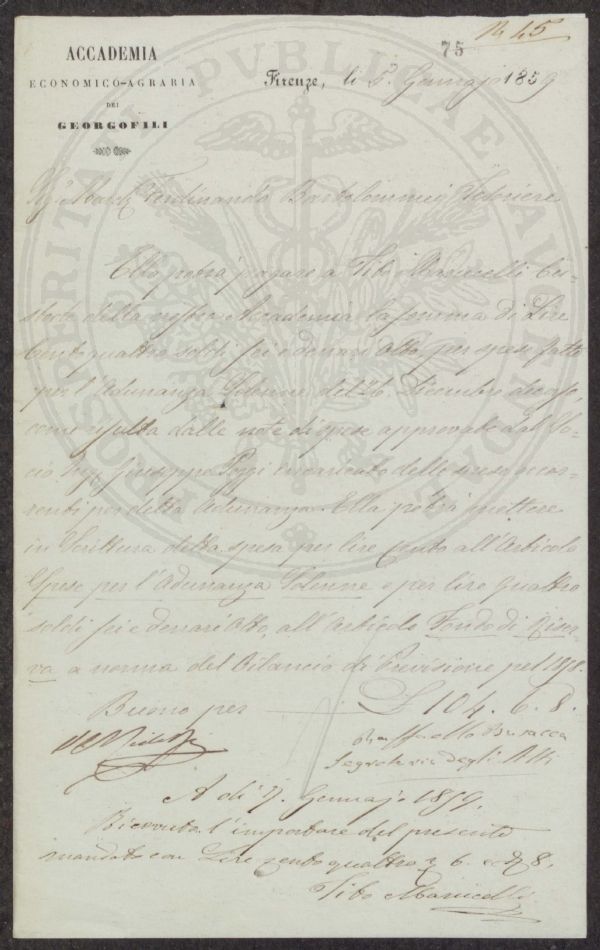 N 45
75
ACCADEMIA
ECONOMICO-AGRARIA
DEI
GEORGOFILI
Firenze, li 5. Gennajo 1859
Sig.r March. Ferdinando Bartolommei Tesoriere
Ella potrà pagare a Tito Manicelli Cu-
stode della nostra Accademia la somma di Lire
Cento quattro soldi sei e denari Otto, per spese fatte
per l'Adunanza Solenne del Dicembre decorso,
come resulta dalle note di spese approvate dal So-
cio Giuseppe Poggi incaricato delle spese occor-
renti per detta Adunanza. Ella potrà mettere
in Scrittura detta spesa per lire Cento all'Articolo
Spese per l'Adunanza Solenne e per lire quattro
soldi sei e denari Otto, all'Articolo Fondo di Riser-
va a norma del Bilancio di Previsione pel 1858.
Buono per £ 104. 6. 8.
Raffaello Busacca
Segretario degli Atti
A dì 7. Gennajo 1859.
Ricevuto l'importare del presente
mandato con Lire cento quattro 6. e 8.
Tito Manicelli
PROSPERITATI PVBLICAE AVGENDAE